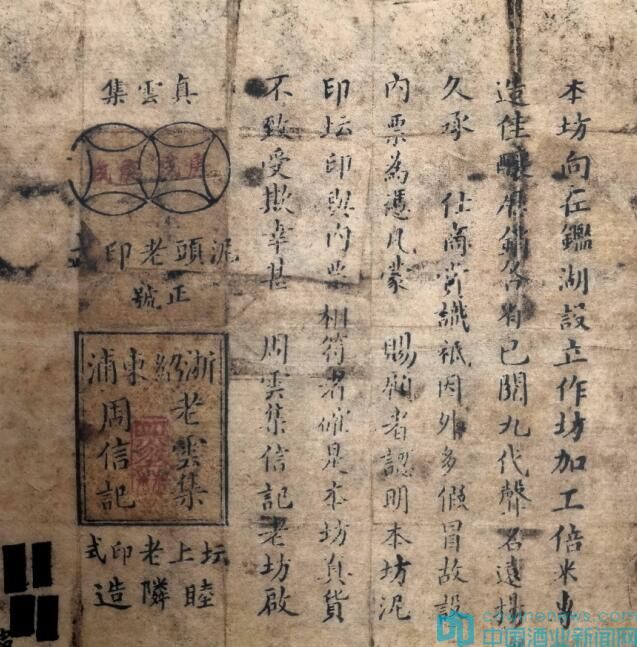 本坊向在鑑湖設立作坊加工倍米專
造佳釀歷銷各省已閱九代聲名遠揚
久承 仕商賞識祇因外多假冒故設
內票為憑凡蒙 賜顧者認明本坊泥
印坛印與內票相符者確是本坊真貨
不致受欺幸甚 周雲集信記老坊啟
真雲集
泥頭老印式
正號
浙紹東浦
老雲集
周信記
坛上老印式
睦隣造
cnwinenews.com
中国酒业新闻网